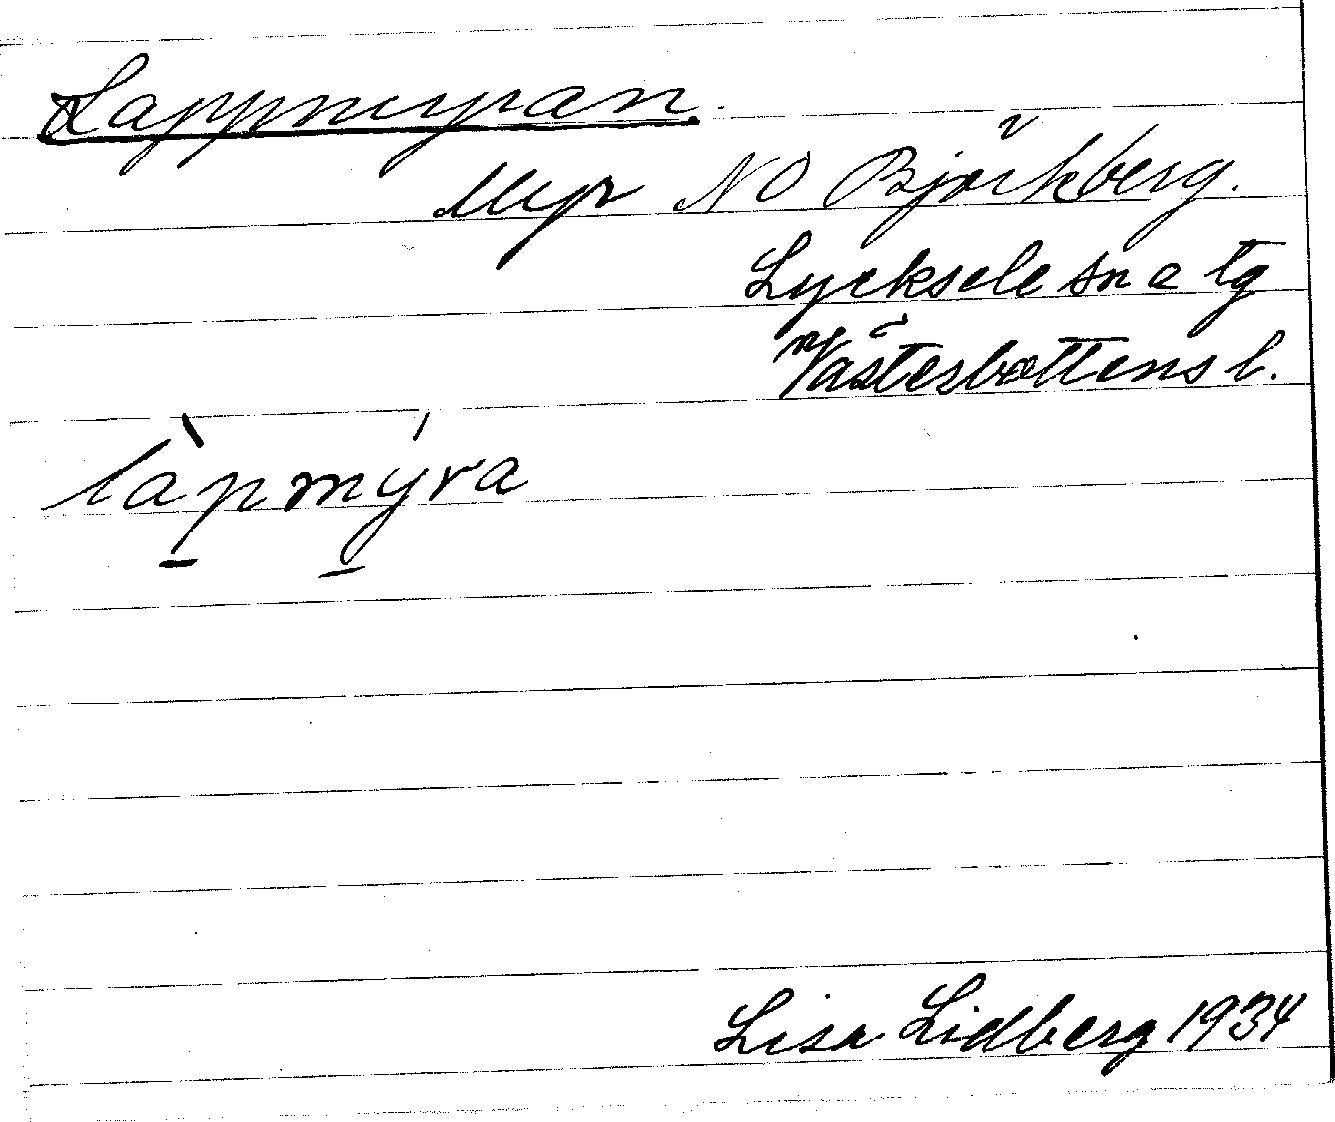 Lappmyran.
Myr NO Björkberg.
Lycksele sn o tg
Västerbottens l.
làp̱mý̱ra
Lisa Lidberg 1934